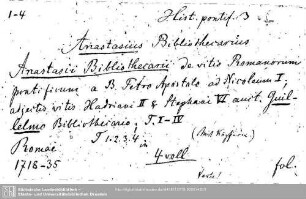 1-4
Hist. pontif. 3
Anastasius Bibliothecarius
Anastasii Bibliothecarii de vitis Romanorum
pontificum a B. Petro Apostolo ad Nicolaum I,
adjectis vitis Hadriani II & Stephani VI auct. Guil-
lelmo Bibliothecario; T. I-IV
T 1.2.3.4 in
Romae
4 voll
1718-35
fol.